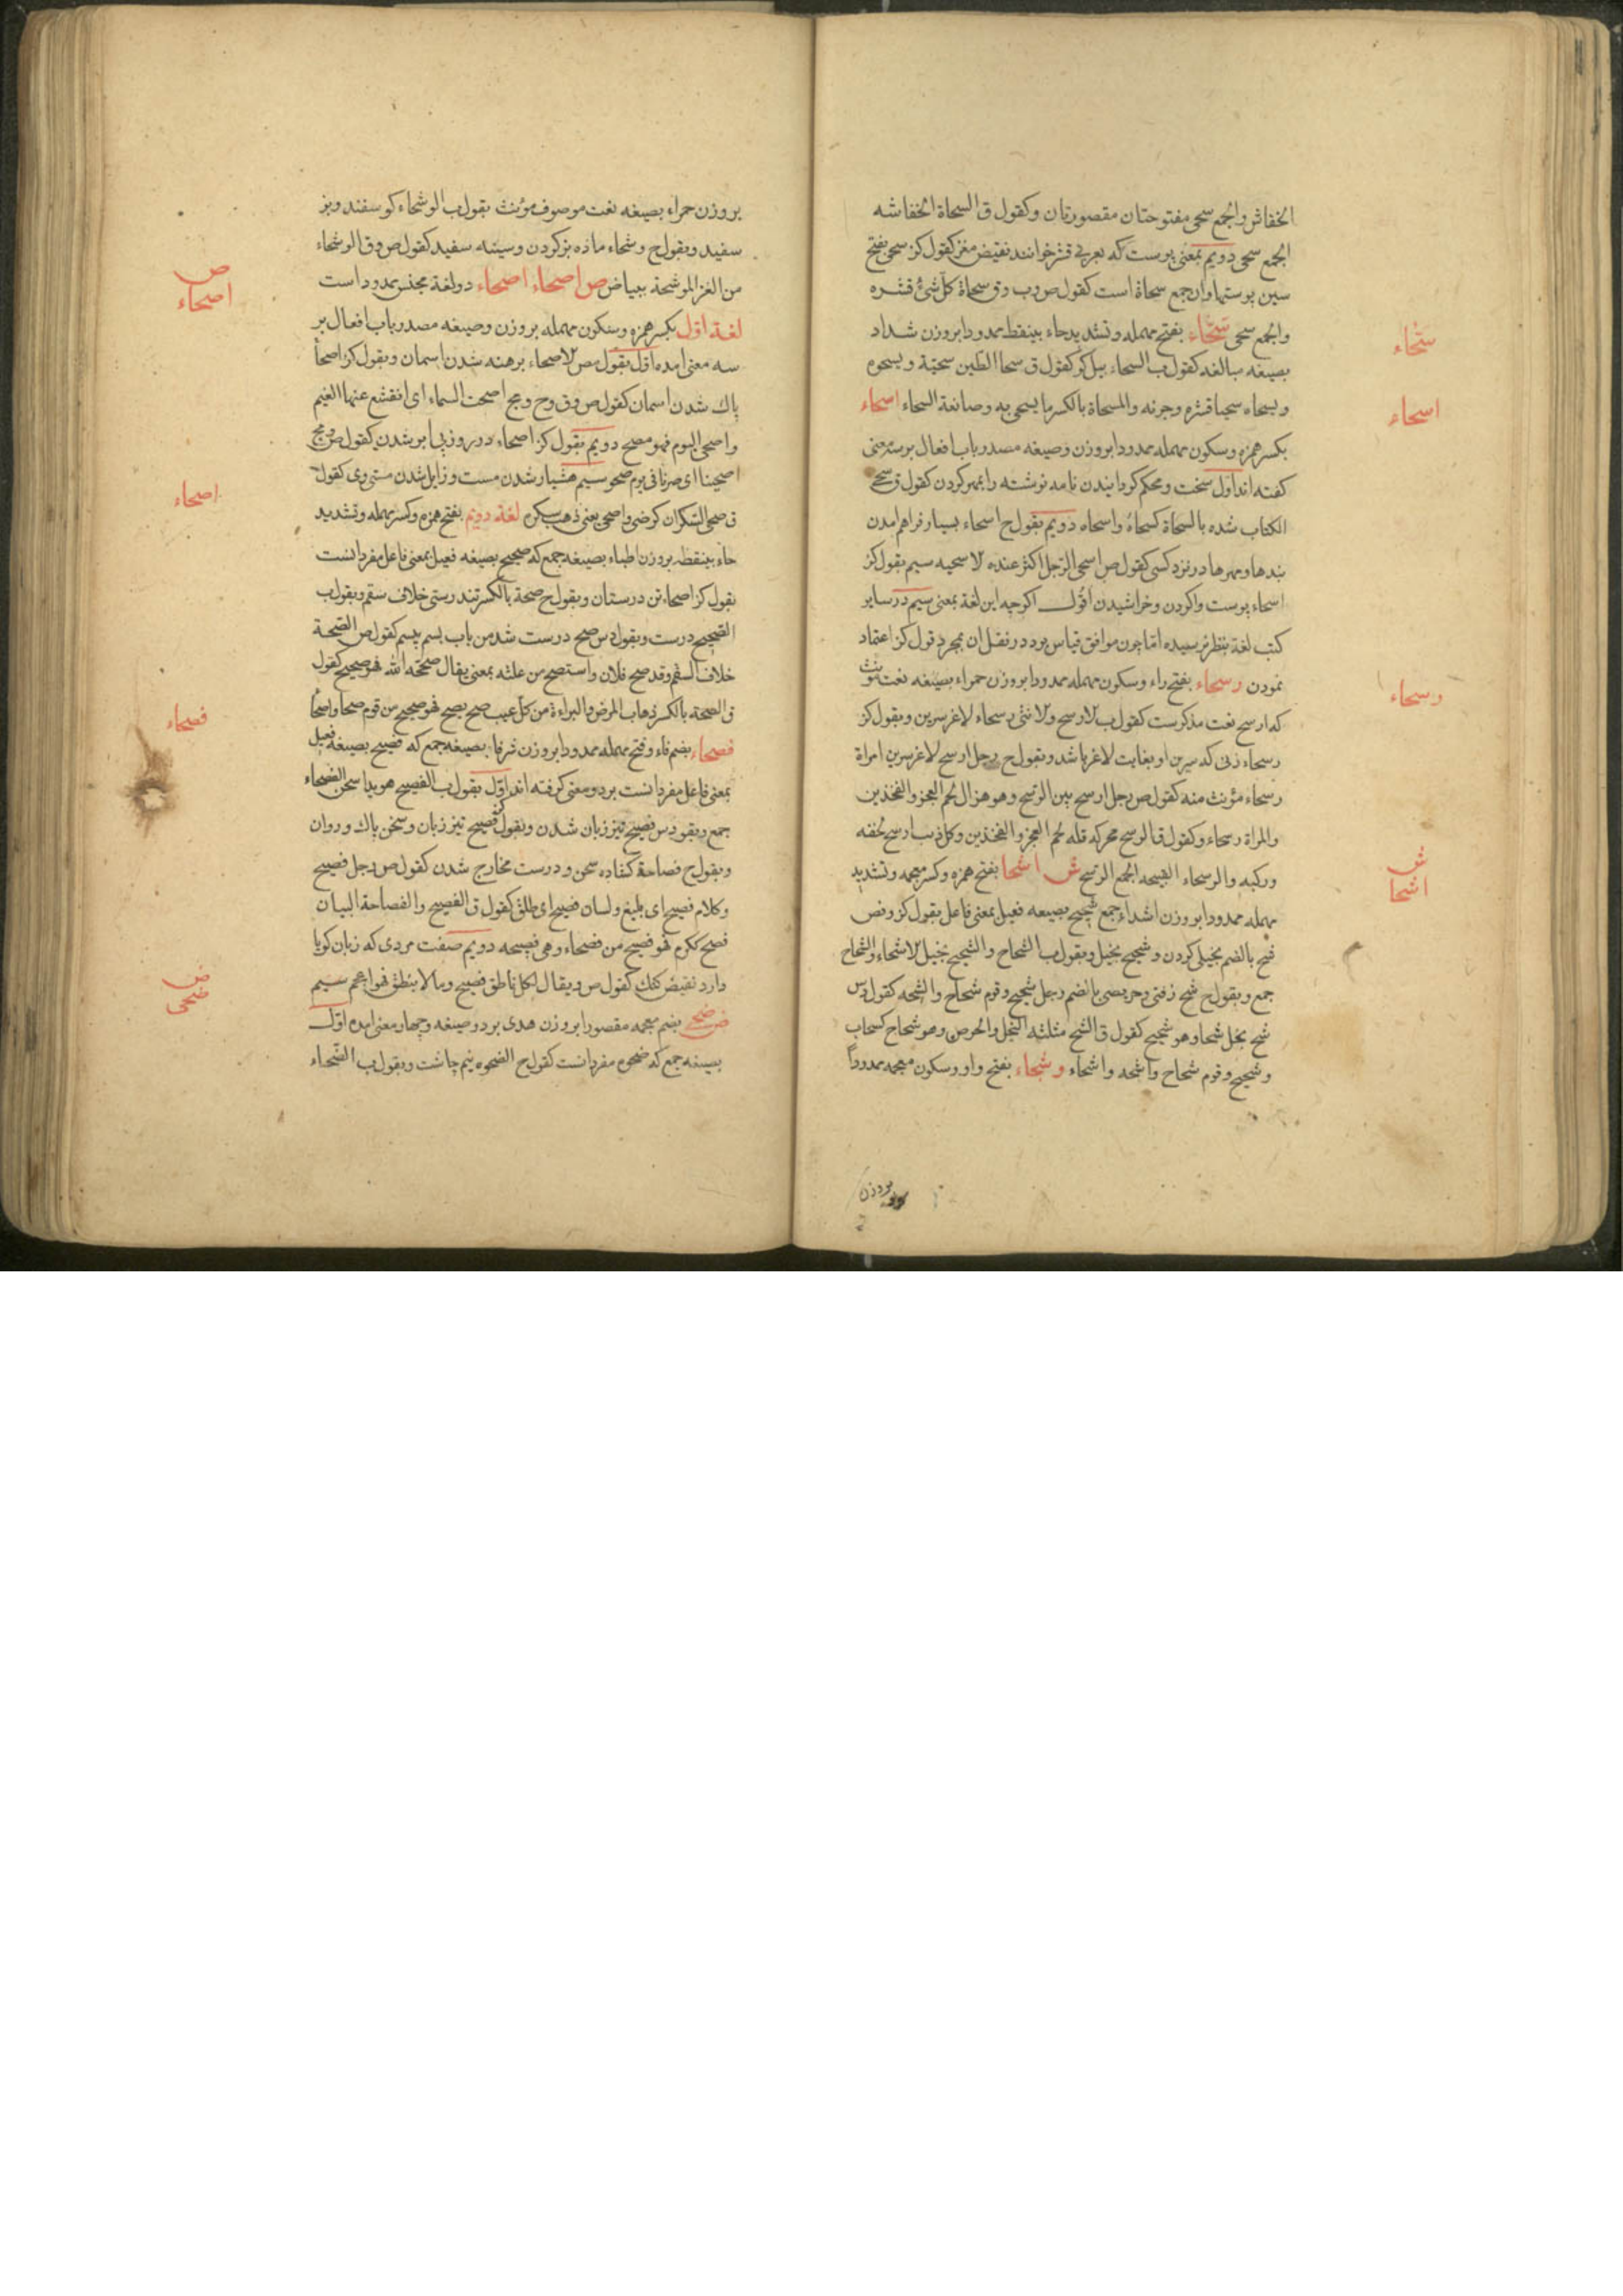 الخفاش والجمع سحی مفتوحتان مقصورتان وکقول ق السحاة الخفاشه
الجمع سحی دویم بمعنی پوست که بعربی قشر خوانند نقیض مغز کقول کز سحی بفتح
سین پوستها وان جمع سحاة است کقول ص وب وق سحاة کل شئ قشره
والجمع سحی سحّاء بفتح مهمله وتشدید حاء بینقطه ممدودا بروزن شداد
بصیغه مبالغه کقول ب السحاء بیل کر کقول ق سحا الطین سحیة ویسحوه
ویسحاه سحیا قشره وجرفه والمسحاة بالکسر ما یسحی به وصانعة السحاء اسحاء
بکسر همزه وسکون مهمله ممدودا بروزن وصیغه مصدر باب افعال بر سه معنی
کفته اند اول سخت ومحکم کردانیدن نامه نوشته را بمهر کردن کقول ق سحی
الکتاب شده بالسحاة کسحاه واسحاه دویم بقول ح اسحاء بسیار فراهم امدن
بندها ومهرها در نزد کسی کقول ص اسحی الرجل اکثر عنده الاسحیه سیم بقول کز
اسحاء پوست واکردن وخراشیدن اقول اکرچه این لغة بمعنی سیم در سایر
کتب لغة بنظر نرسیده اما چون موافق قیاس بود در نقل ان بمجرد قول کز اعتماد
نمودن رسحاء بفتح راء وسکون مهمله ممدودا بروزن حمراء بصیغه نعت مونث
که ارسح نعت مذکرست کقول ب الارسح والانثی رسحاء لاغر سرین وبقول کز
رسحاء زنی که سرین او بغایت لاغر باشد وبقول ح رجل ارسح لاغر سرین امراة
رسحاء مؤنث منه کقول ص رجل ارسح بین الرسح وهو هزال لحم العجز والفخذین
والمراة رسحاء وکقول ق الرسح محرکه قله لحم العجز والفخذین وکل ذئب ارسح لخفه
ورکیه والرسحاء القبیحه الجمع الرسح ش اشحا بفتح همزه وکسر معجمه وتشدید
مهمله ممدودا بروزن اشداء جمع شحیح بصیغه فعیل بمعنی فاعل بقول کز ونص
شح بالضم بخیلی کردن وشحیح بخیل وبقول ب الشحاح والشحیح بخیل الاشحاء والشحاح
جمع وبقول ح شح زفتی وحریصی بالضم رجل شحیح وقوم شحاح واشحه کقول دس
شح بخل شحا وهو شحیح کقول ق الشح مثلثه البخل والحرص وهو شحاح کسحاب
وشحیح وقوم شحاح واشحه واشحاء وشحاء بفتح واو وسکون معجمه ممدودا
بروزن
سحّاء
اسحاء
رسحاء
ش
اشحا
بروزن حمراء بصیغه نعت موصوف مؤنث بقول ب الوشحاء کوسفند وبز
سفید وبقول ح وشحاء ماده بز کردن وسینه سفید کقول ص وق الوشحاء
من الغز الموشحة ببیاض ص اصحاء اصحاء دو لغة مجنس ممدود است
لغة اول بکسر همزه وسکون مهمله بروزن وصیغه مصدر باب افعال بر
سه معنی امده اول بقول مص الاصحاء برهنه شدن اسمان وبقول کز اصحأ
پاک شدن اسمان کقول ص وق وح ومج اصحت السماء ای انقشع عنها الغیم
واصحی الیوم فهو مصح دویم بقول کز اصحاء در روز بی ابر شدن کقول ص ومج
اصحینا ای صرنا فی یوم صحو سیم هشیار شدن مست وزایل شدن مستی وی کقول
ق صحی السکران کرضی واصحی یعنی ذهب سکره لغة دویم بفتح همزه وکسر مهمله وتشدید
حاء بینقطه بروزن اطباء بصیغه جمع که صحیح بصیغه فعیل بمعنی فاعل مفردانست
بقول کز اصحاء تن درستان وبقول ح صحة بالکسر تندرستی خلاف سقم وبقول ب
الصحیح درست وبقول دس صح درست شد من باب بسم یبسم کقول ص الصحة
خلاف السقم وقد صح فلان واستصح من علته بمعنی یقال صححه الله فهو صحیح کقول
ق الصحة بالکسر ذهاب المرض والبراءة من کل عیب صح یصح فهو صحیح من قوم صحاح واصحأ
فصحاء بضم فاء وفتح مهمله ممدودا بروزن شرفا بصیغه جمع که فصیح بصیغه فعیل
بمعنی فاعل مفردانست بر دو معنی کرفته اند اول بقول ب الفصیح هویدا سخن الفصحاء
جمع وبقود دس فصیح تیز زبان شدن وبقول کز فصیح تیز زبان وسخن پاک وروان
وبقول ح فصاحة کشاده سخن ودرست مخارج شدن کقول ص رجل فصیح
وکلام فصیح ای بلیغ ولسان فصیح ای طلق کقول ق الفصیح والفصاحة البیان
فصح ککرم فهو فصیح من فصحاء وهی فصیحه دویم صفت مردی که زبان کویا
دارد نقیض کنک کقول ص ویقال لکل ناطق فصیح وما لا ینطق فهو اعجم سیم
ض ضحی بضم معجمه مقصورا بروزن هدی بر دو صیغه وچهار معنی امده اول
بصیغه جمع که ضحوه مفردانست کقول ح الضحوه نیم چاشت وبقول ب الضحاء
ص
اصحاء
اصحاء
فصحاء
ض
ضحی